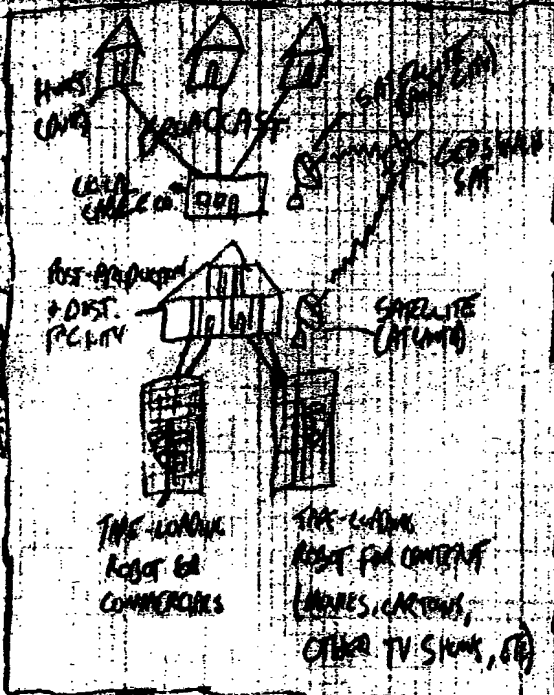 BROADCAST
SATELLITE
LOCAL
CABLE CO
SAT
POST-PRODUCTION
+ DIST.
FACILITY
SATELLITE
(ATLANTA)
TAPE-LOADING
ROBOT FOR
COMMERCIALS
TAPE-LOADING
ROBOT FOR CONTENT
(MOVIES, CARTOONS,
OTHER TV SHOWS, ETC)